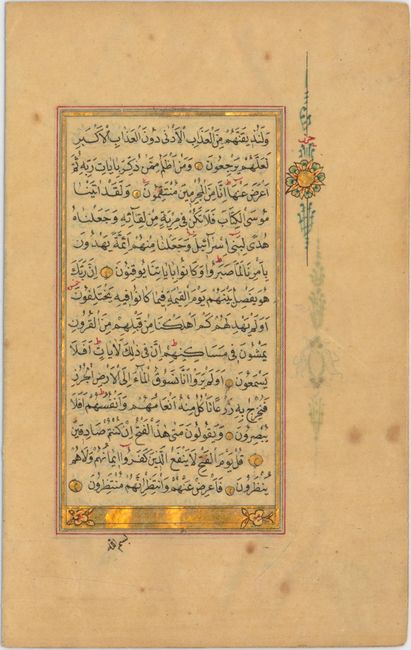 وَلَنُذِيقَنَّهُمْ مِنَ الْعَذَابِ الْأَدْنَى دُونَ الْعَذَابِ الْأَكْبَرِ
لَعَلَّهُمْ يَرْجِعُونَ وَمَنْ أَظْلَمُ مِمَّنْ ذُكِّرَ بِايَاتِ رَبِّهِ ثُمَّ
أَعْرَضَ عَنْهَا إِنَّا مِنَ الْمُجْرِمِينَ مُنْتَقِمُونَ وَلَقَدْ اتَيْنَا
مُوسَى الْكِتَابَ فَلَا تَكُنْ فِي مِرْيَةٍ مِنْ لِقَائِهِ وَجَعَلْنَاهُ
هُدًى لِبَنِي إِسْرَائِيلَ وَجَعَلْنَا مِنْهُمْ أَئِمَّةً يَهْدُونَ
بِأَمْرِنَا لَمَّا صَبَرُوا وَكَانُوا بِايَاتِنَا يُوقِنُونَ إِنَّ رَبَّكَ
هُوَ يَفْصِلُ بَيْنَهُمْ يَوْمَ الْقِيٰمَةِ فِيمَا كَانُوا فِيهِ يَخْتَلِفُونَ
أَوَلَمْ يَهْدِ لَهُمْ كَمْ أَهْلَكْنَا مِنْ قَبْلِهِمْ مِنَ الْقُرُونِ
يَمْشُونَ فِي مَسَاكِنِهِمْ إِنَّ فِي ذٰلِكَ لَايَاتٍ أَفَلَا
يَسْمَعُونَ أَوَلَمْ يَرَوْا أَنَّا نَسُوقُ الْمَاءَ إِلَى الْأَرْضِ الْجُرُزِ
فَنُخْرِجُ بِهِ زَرْعًا تَأْكُلُ مِنْهُ أَنْعَامُهُمْ وَأَنْفُسُهُمْ أَفَلَا
يُبْصِرُونَ وَيَقُولُونَ مَتَى هٰذَا الْفَتْحُ إِنْ كُنْتُمْ صَادِقِينَ
قُلْ يَوْمَ الْفَتْحِ لَا يَنْفَعُ الَّذِينَ كَفَرُوا إِيمَانُهُمْ وَلَا هُمْ
يُنْظَرُونَ فَأَعْرِضْ عَنْهُمْ وَانْتَظِرْ إِنَّهُمْ مُنْتَظِرُونَ
بسم الله